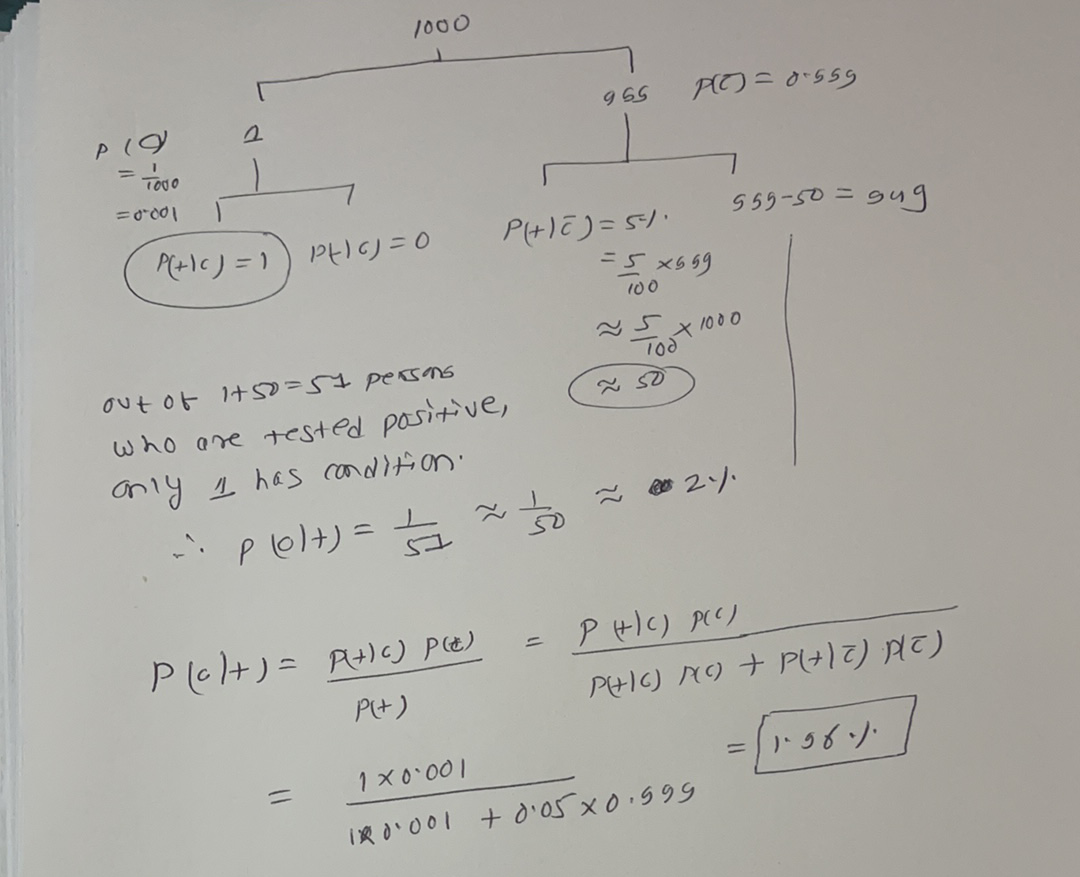 1000
1
999
P(C̄) = 0.999
P(C)
= 1/1000
= 0.001
P(+|C) = 1
P(-|C) = 0
P(+|C̄) = 5%.
= 5/100 × 999
≈ 5/100 × 1000
≈ 50
999-50 = 949
out of 1+50 = 51 persons
who are tested positive,
only 1 has condition.
∴ P(C|+) = 1/51 ≈ 1/50 ≈ 2%.
P(C|+) = P(+|C) P(C) / P(+) = P(+|C) P(C) / P(+|C) P(C) + P(+|C̄) P(C̄)
= 1×0.001 / 1×0.001 + 0.05×0.999 = 1.96%.